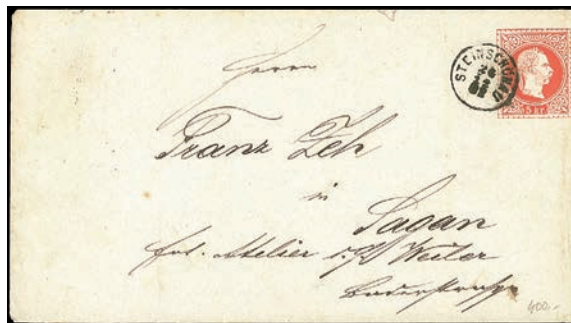 STEINSCHÖNAU
5 kr.
Herrn
Franz Zeh
in
Sagan
Atelier
Weiler
400.-